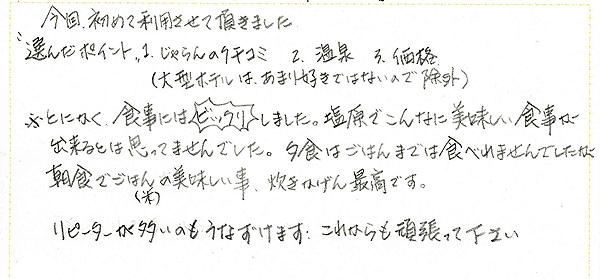 今回、初めて利用させて頂きました
"選んだポイント" 1. じゃらんのクチコミ 2. 温泉 3. 価格
(大型ホテルは、あまり好きではないので除外)
※とにかく、食事にはビックリしました。塩原でこんなに美味しい食事が
出来るとは思ってませんでした。夕食はごはんまでは食べれませんでしたが
朝食でごはんの美味しい事、炊きかげん最高です。
(米)
リピーターが多いのもうなずけます。これからも頑張って下さい